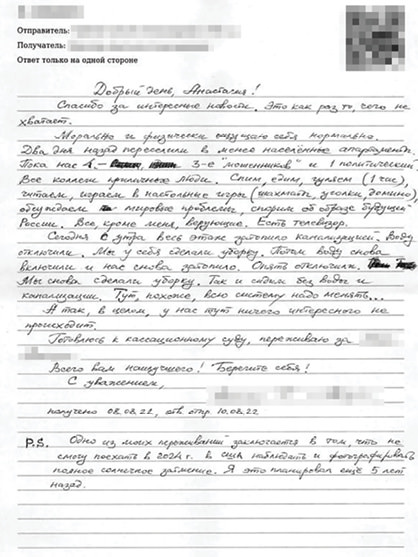 Отправитель:
Получатель:
Ответ только на одной стороне
Добрый день, Анастасия!
Спасибо за интересные новости. Это как раз то, чего не
хватает.
Морально и физически ощущаю себя нормально.
Два дня назад переселили в менее населённые апартаменты.
Пока нас 4 – 3-е "мошенников" и 1 политический.
Все коллеги приличные люди. Спим, едим, гуляем (1 час),
читаем, играем в настольные игры (шахматы, уголки, домино),
обсуждаем мировые проблемы, спорим об образе будущей
России. Все, кроме меня, верующие. Есть телевизор.
Сегодня с утра весь этаж затопило канализацией. Воду
отключили. Мы у себя сделали уборку. Потом воду снова
включили и нас снова затопило. Опять отключили.
Мы снова сделали уборку. Так и сидим без воды и
канализации. Тут, похоже, всю систему надо менять...
А так, в целом, у нас тут ничего интересного не
происходит.
Готовлюсь к кассационному суду, переживаю за
Всего вам наилучшего! Берегите себя!
С уважением,
получено 08.08.22, отв. отпр. 10.08.22
P.S. Одно из моих переживаний заключается в том, что не
смогу поехать в 2024 г. в США наблюдать и фотографировать
полное солнечное затмение. Я это планировал ещё 5 лет
назад.